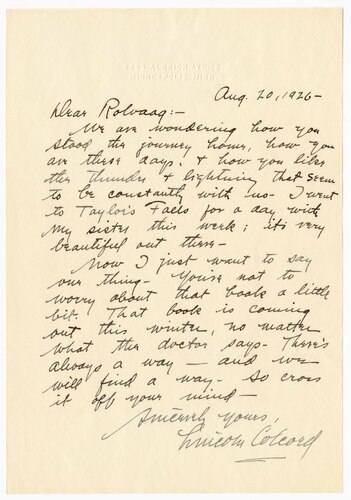 MINNEAPOLIS, MINN.
Aug. 20, 1926-
Dear Rolvaag:-
We are wondering how you
stood the journey home, how you
are these days, & how you like
the thunder & lightning that seem
to be constantly with us. I went
to Taylors Falls for a day with
my sister this week; it's very
beautiful out there-
Now I just want to say
one thing- You're not to
worry about that book a little
bit. That book is coming
out this winter, no matter
what the doctor says- There's
always a way - and we
will find a way. So cross
it off your mind-
Sincerely yours,
Lincoln Colcord